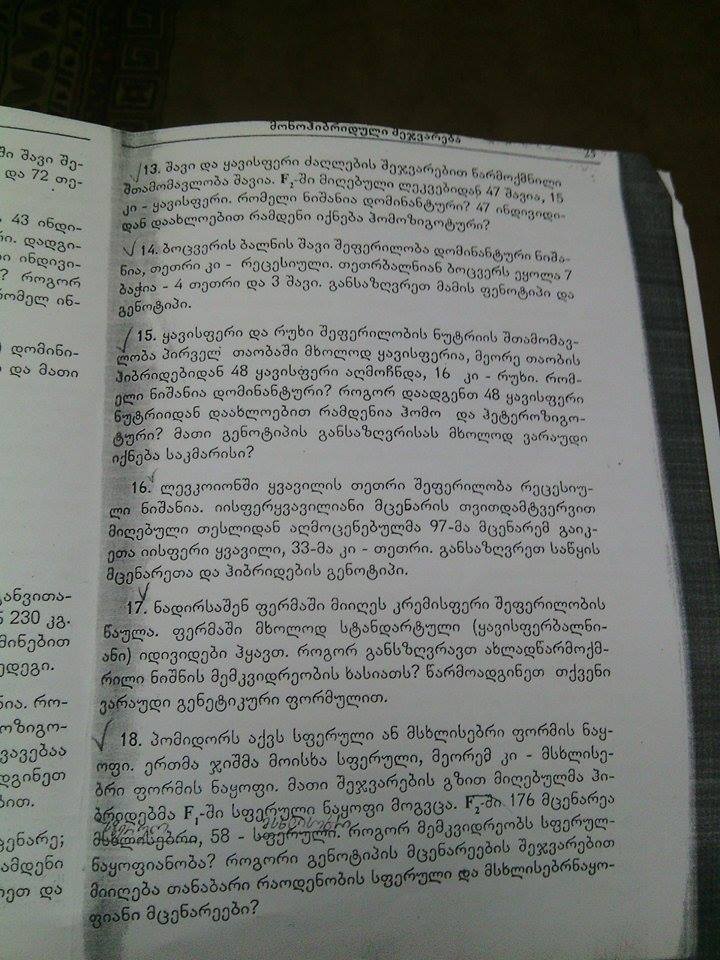 ში შავი შე-
და 72 თე-
43 ინდი-
რი. დადგი-
ი ინდივი-
? როგორ
რომელ ინ-
დომინი-
და მათი
განვითა-
230 კგ.
მინებით
ედეგი.
ნია. რო-
ოზიგო-
ვავებაა
დგინეთ
ბით.
ცენარე;
ამდენი
რეთ და
მონოჰიბრიდული შეჯვარება
25
13. შავი და ყავისფერი ძაღლების შეჯვარებით წარმოქმნილი
შთამომავლობა შავია. F₂-ში მიღებული ლეკვებიდან 47 შავია, 15
კი - ყავისფერი. რომელი ნიშანია დომინანტური? 47 ინდივიდი-
დან დაახლოებით რამდენი იქნება ჰომოზიგოტური?
14. ბოცვერის ბალნის შავი შეფერილობა დომინანტური ნიშა-
ნია, თეთრი კი - რეცესიული. თეთრბალნიან ბოცვერს ეყოლა 7
ბაჭია - 4 თეთრი და 3 შავი. განსაზღვრეთ მამის ფენოტიპი და
გენოტიპი.
15. ყავისფერი და რუხი შეფერილობის ნუტრიის შთამომავ-
ლობა პირველ თაობაში მხოლოდ ყავისფერია, მეორე თაობის
ჰიბრიდებიდან 48 ყავისფერი აღმოჩნდა, 16 კი - რუხი. რომ-
ელი ნიშანია დომინანტური? როგორ დაადგენთ 48 ყავისფერი
ნუტრიიდან დაახლოებით რამდენია ჰომო და ჰეტეროზიგო-
ტური? მათი გენოტიპის განსაზღვრისას მხოლოდ ვარაუდი
იქნება საკმარისი?
16. ლევკოიონში ყვავილის თეთრი შეფერილობა რეცესიუ-
ლი ნიშანია. იისფერყვავილიანი მცენარის თვითდამტვერვით
მიღებული თესლიდან აღმოცენებულმა 97-მა მცენარემ გაიკ-
ეთა იისფერი ყვავილი, 33-მა კი - თეთრი. განსაზღვრეთ საწყის
მცენარეთა და ჰიბრიდების გენოტიპი.
17. ნადირსაშენ ფერმაში მიიღეს კრემისფერი შეფერილობის
წაულა. ფერმაში მხოლოდ სტანდარტული (ყავისფერბალნი-
ანი) იდივიდები ჰყავთ. როგორ განსზღვრავთ ახლადწარმოქმ-
რილი ნიშნის მემკვიდრეობის ხასიათს? წარმოადგინეთ თქვენი
ვარაუდი გენეტიკური ფორმულით.
18. პომიდორს აქვს სფერული ან მსხლისებრი ფორმის ნაყ-
ოფი. ერთმა ჯიშმა მოისხა სფერული, მეორემ კი - მსხლისე-
ბრი ფორმის ნაყოფი. მათი შეჯვარების გზით მიღებულმა ჰი-
ბრიდებმა F₁-ში სფერული ნაყოფი მოგვცა. F₂-ში 176 მცენარეა
მსხლისებრი, 58 - სფერული. როგორ მემკვიდრეობს სფერულ-
ნაყოფიანობა? როგორი გენოტიპის მცენარეების შეჯვარებით
მიიღება თანაბარი რაოდენობის სფერული და მსხლისებრნაყო-
ფიანი მცენარეები?